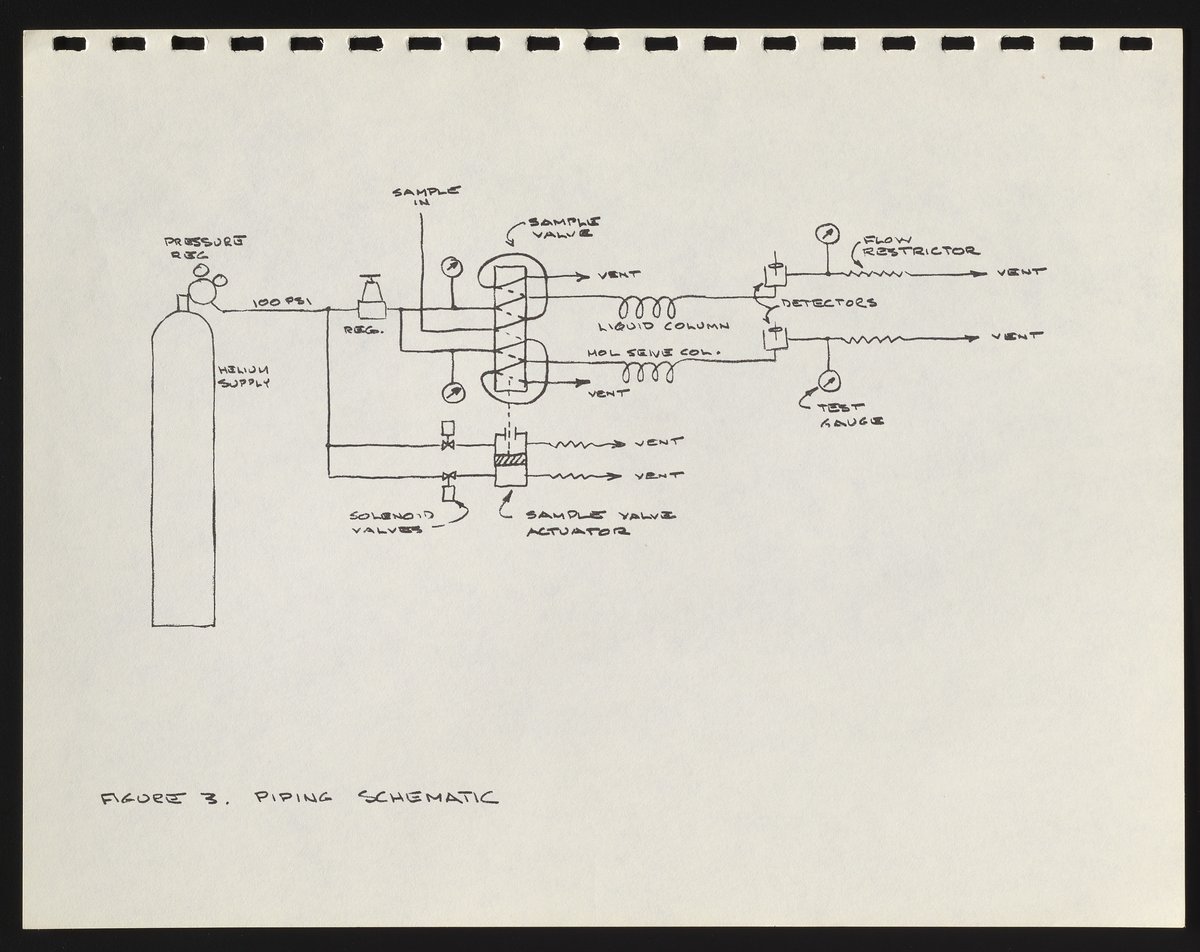 SAMPLE
IN
SAMPLE
VALVE
PRESSURE
REG
FLOW
RESTRICTOR
VENT
VENT
100 PSI
REG.
DETECTORS
LIQUID COLUMN
VENT
MOL SEIVE COL.
HELIUM
SUPPLY
VENT
TEST
GAUGE
VENT
VENT
SOLENOID
VALVES
SAMPLE VALVE
ACTUATOR
FIGURE 3. PIPING SCHEMATIC